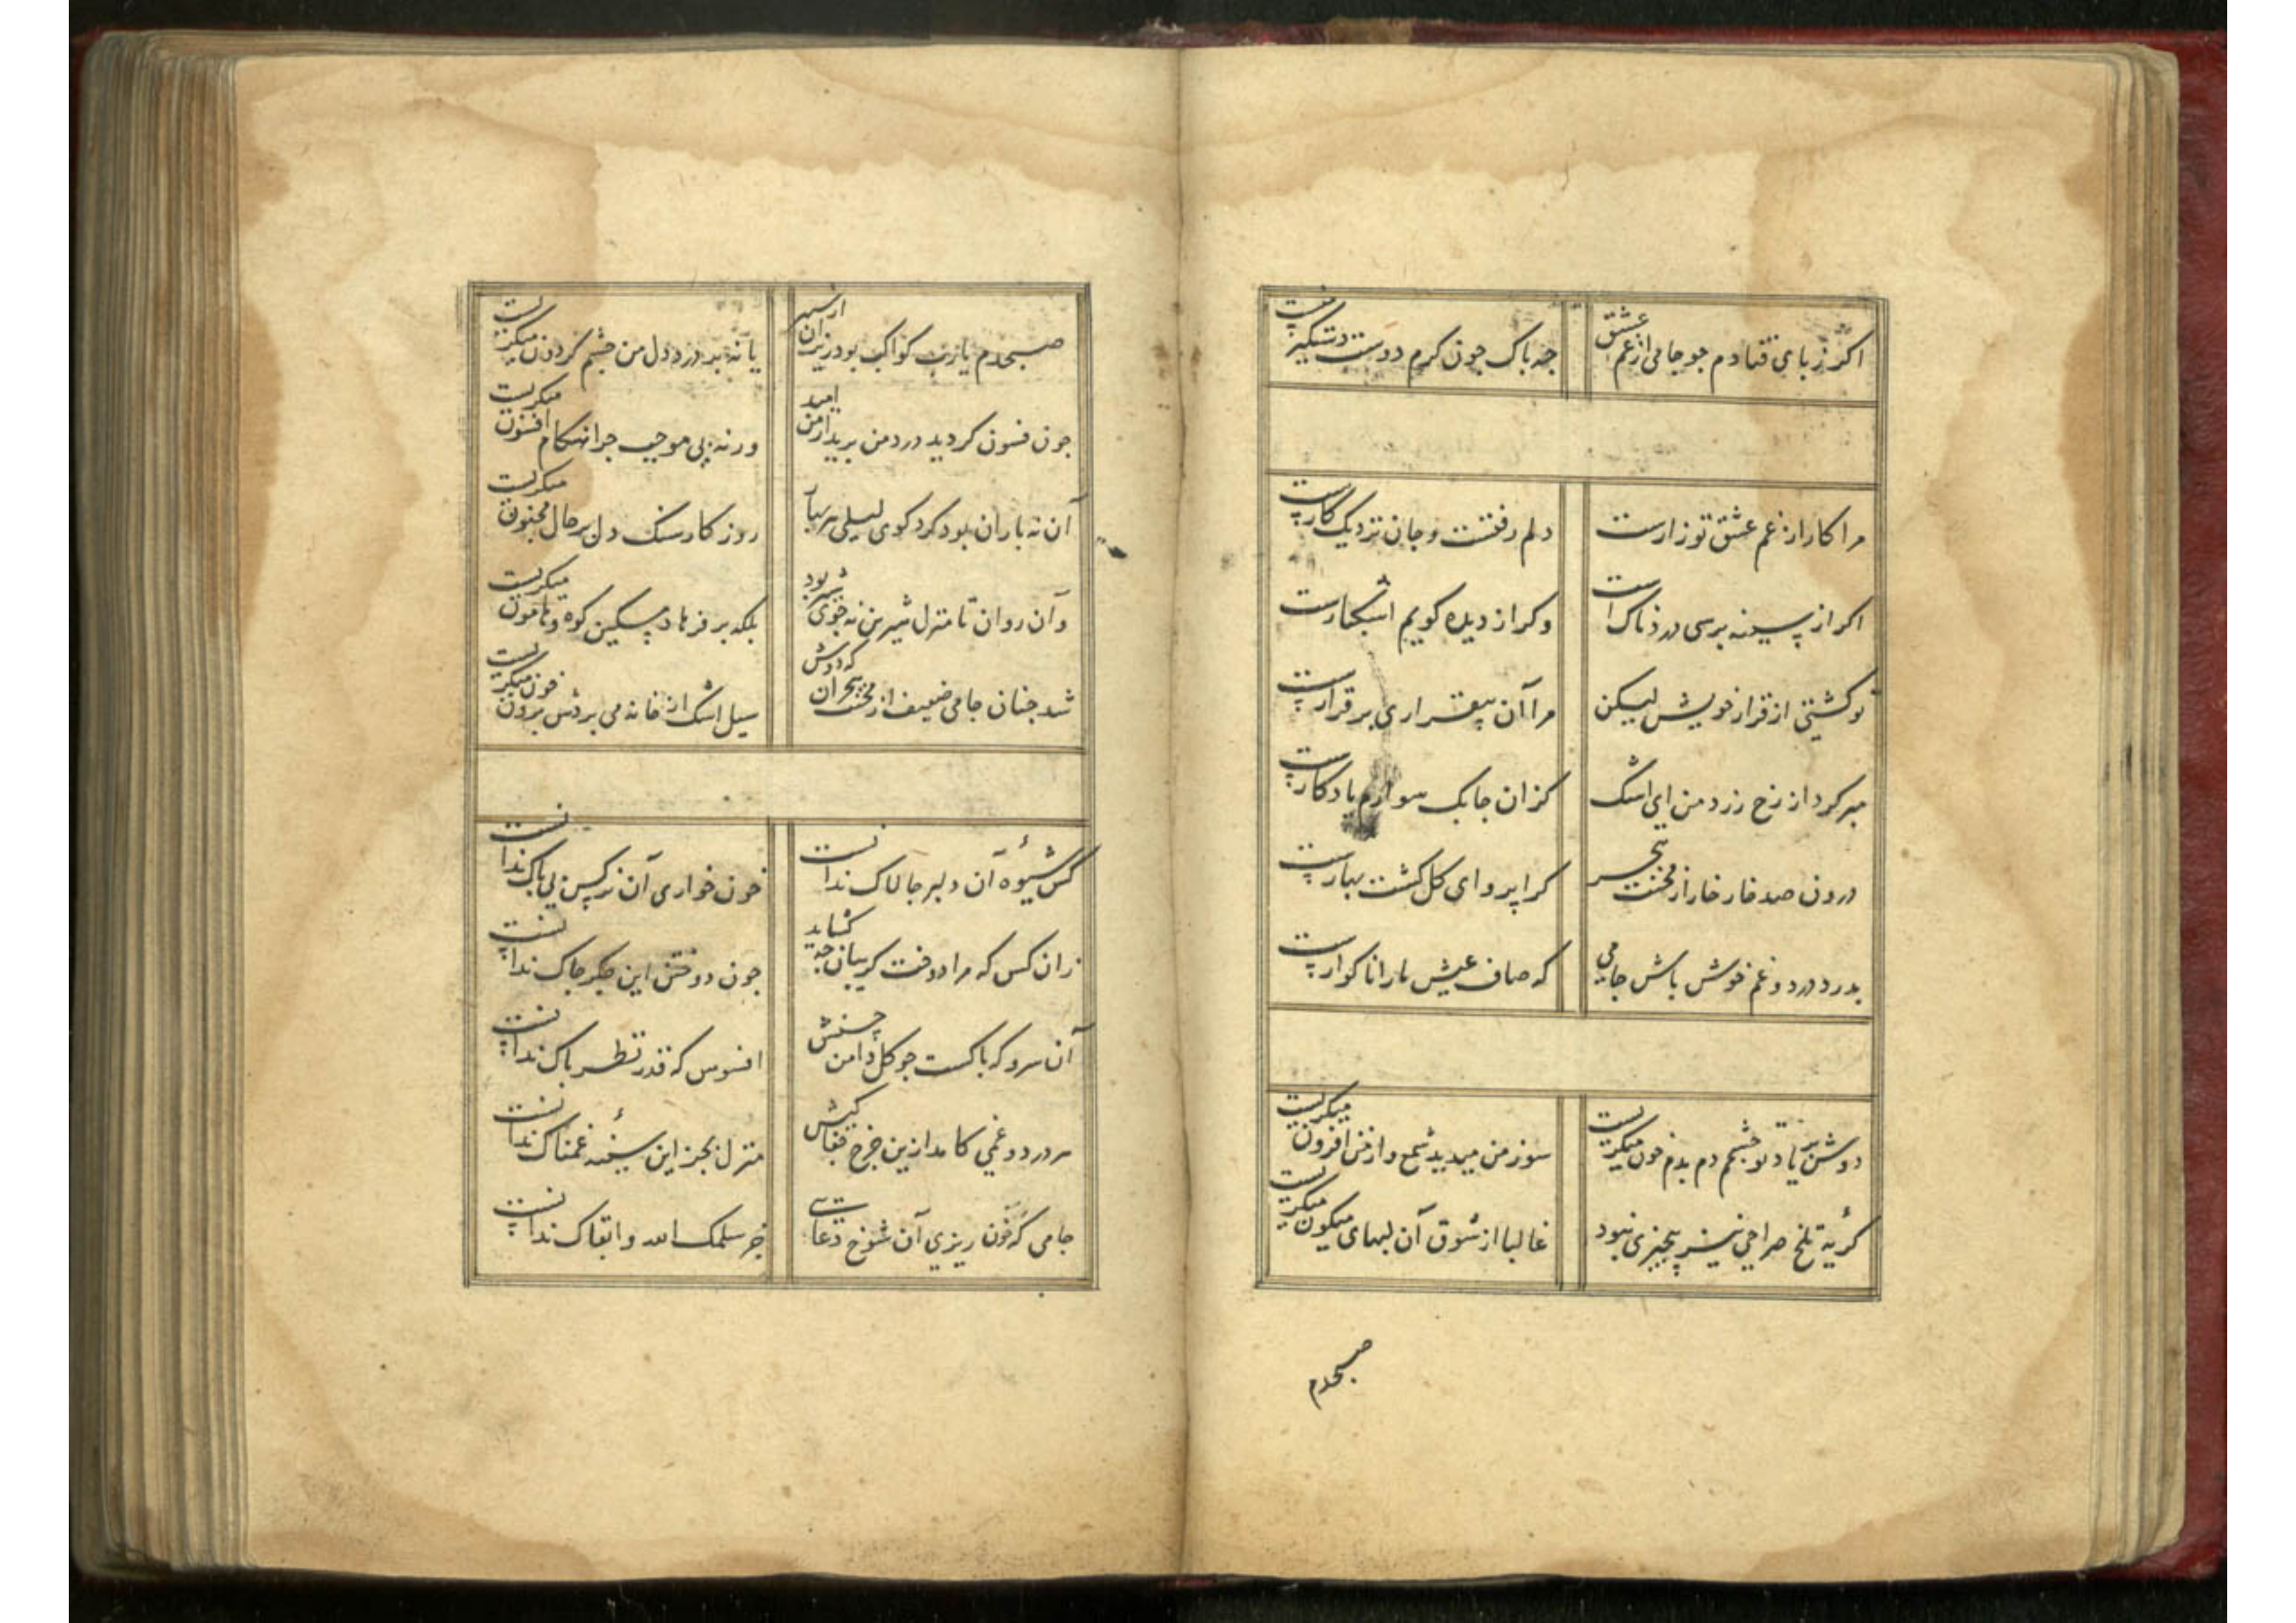 اکر ز بای فتادم جو جامی از غم عشق
جه باک جون کرم دوست دستکیر منست
مرا کار از غم عشق تو زارست
دلم رفتست و جان نزدیک کارست
اکر از سینه برسی دردناک است
وکر از دیده کویم اشکبارست
تو کشتی از قرار خویش لیکن
مرا آن بیقراری بر قرارست
مبر کرد از رخ زرد من ای اشک
کزان جابک سوارم یادکارست
درون صد خار خار از محنت هجر
کرا بروای کل کشت بهارست
بدرد درد و غم خوش باش جامی
که صاف عیش مارا ناکوارست
دوش بی یاد تو جشمم دم بدم خون میکریست
سوز من میدید شمع و از من افزون میکریست
کریهٔ تلخ صراحی نیز بیجیزی نبود
غالبا از شوق آن لبهای میکون میکریست
صبحدم
صبحدم یارب کواکب بود ریزان از سپهر
یا نه بر درد دل من جشم کردون میکریست
جون فسون کردید درد من برید از من امید
ورنه بی موجب جرا هنکام افسون میکریست
آن نه باران بود کرد کوی لیلی هر بهار
روزکار سنک دل بر حال مجنون میکریست
وآن روان تا منزل شیرین نه جوی شیر بود
بلکه بر فرهاد مسکین کوه و هامون میکریست
شد جنان جامی ضعیف از محنت هجران که دوش
سیل اشک از خانه می بردش برون جون میکریست
کس شیوهٔ آن دلبر جالاک ندانست
خون خواری آن نرکس بی باک ندانست
زان کس که مرا دوخت کریبان جه کشاید
جون دوختن این جکر جاک ندانست
آن سرو که باکست جو کل دامن حسنش
افسوس که قدر نظر باک ندانست
هر درد و غمی کامد ازین جرخ جفا کیش
منزل بجز این سینهٔ غمناک ندانست
جامی که خون ریزی آن شوخ دعایی
جز سلمک الله و ابقاک ندانست